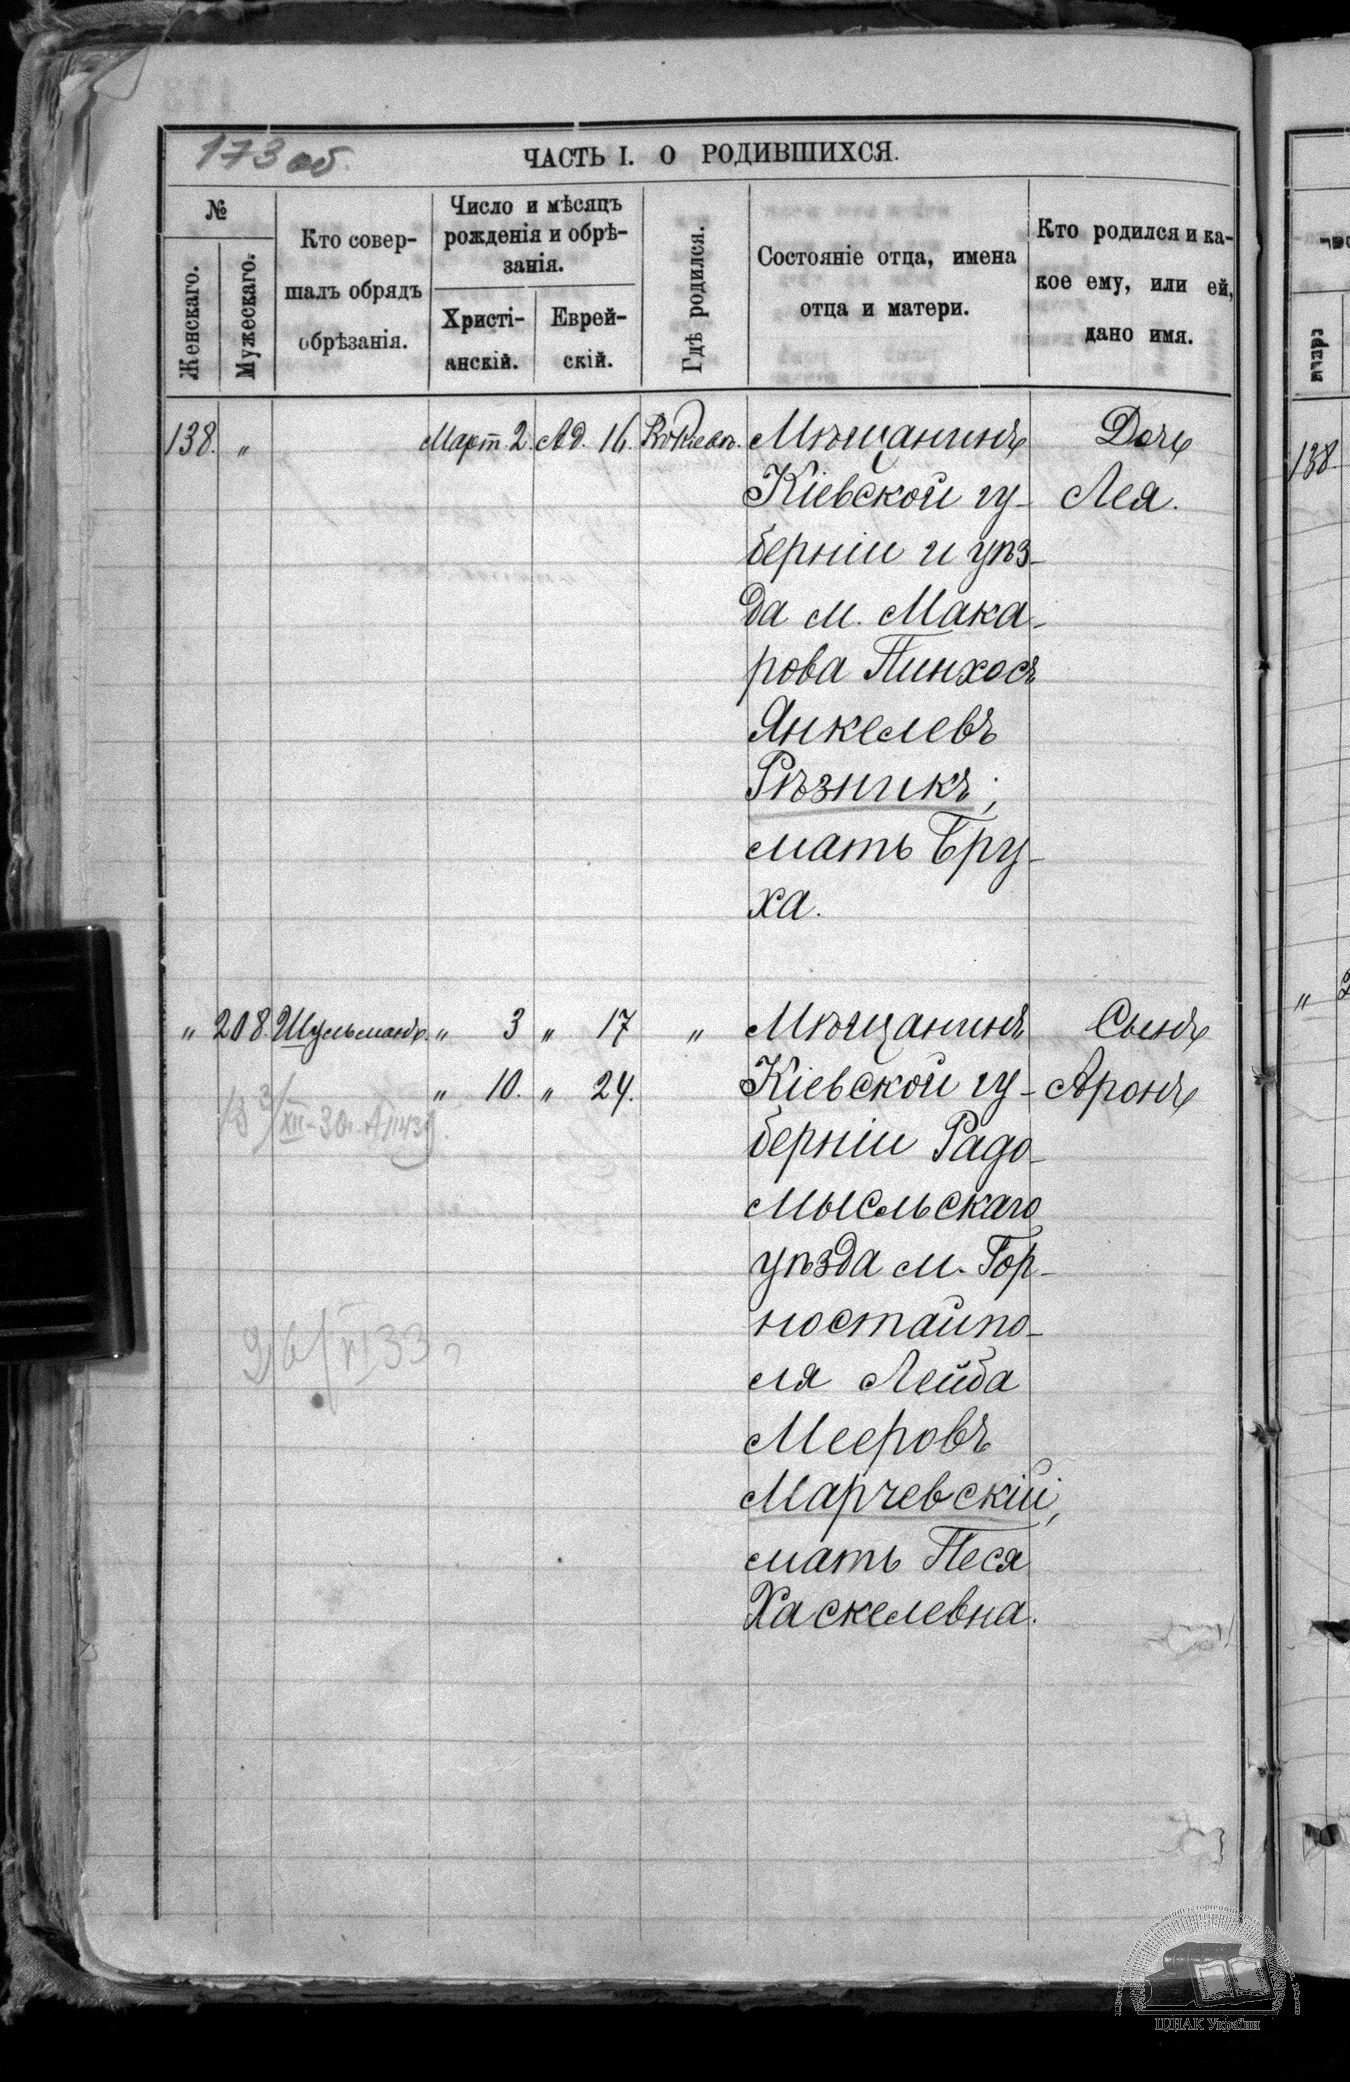 173 об.
ЧАСТЬ I. О РОДИВШИХСЯ.
№
Женскаго.
Мужескаго.
Кто совер-
шалъ обрядъ
обрѣзанія.
Число и мѣсяцъ
рожденія и обрѣ-
занія.
Христі-
анскій.
Еврей-
скій.
Гдѣ родился.
Состояніе отца, имена
отца и матери.
Кто родился и ка-
кое ему, или ей,
дано имя.
138. „ Март. 2. Ад. 16. Въ Кіевѣ. Мѣщанинъ Дочь
Кіевской гу- Лея.
берніи и уѣз-
да м. Мака-
рова Пинхосъ
Янкелевъ
Рѣзникъ;
мать Бру-
ха.
„ 208. Шульманъ. „ 3 „ 17 „ Мѣщанинъ Сынъ
„ 10. „ 24. Кіевской гу- Аронъ
берніи Радо-
мысльскаго
уѣзда м. Гор-
ностайпо-
ля Лейба
Мееровъ
Марчевскій,
мать Песя
Хаскелевна.
138
„
ЦДІАК України